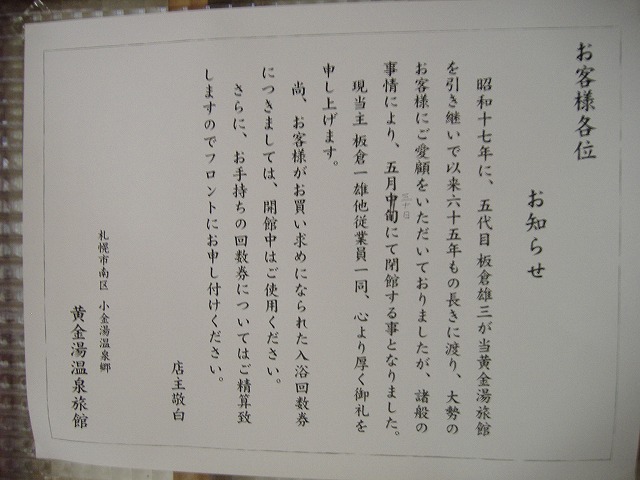 お客様各位
お知らせ
昭和十七年に、五代目 板倉雄三が当黄金湯旅館
を引き継いで以来六十五年もの長きに渡り、大勢の
お客様にご愛顧をいただいておりましたが、諸般の
事情により、五月中旬にて閉館する事となりました。
三十日
現当主 板倉一雄他従業員一同、心より厚く御礼を
申し上げます。
尚、お客様がお買い求めになられた入浴回数券
につきましては、開館中はご使用ください。
さらに、お手持ちの回数券についてはご精算致
しますのでフロントにお申し付けください。
店主敬白
札幌市南区 小金湯温泉郷
黄金湯温泉旅館